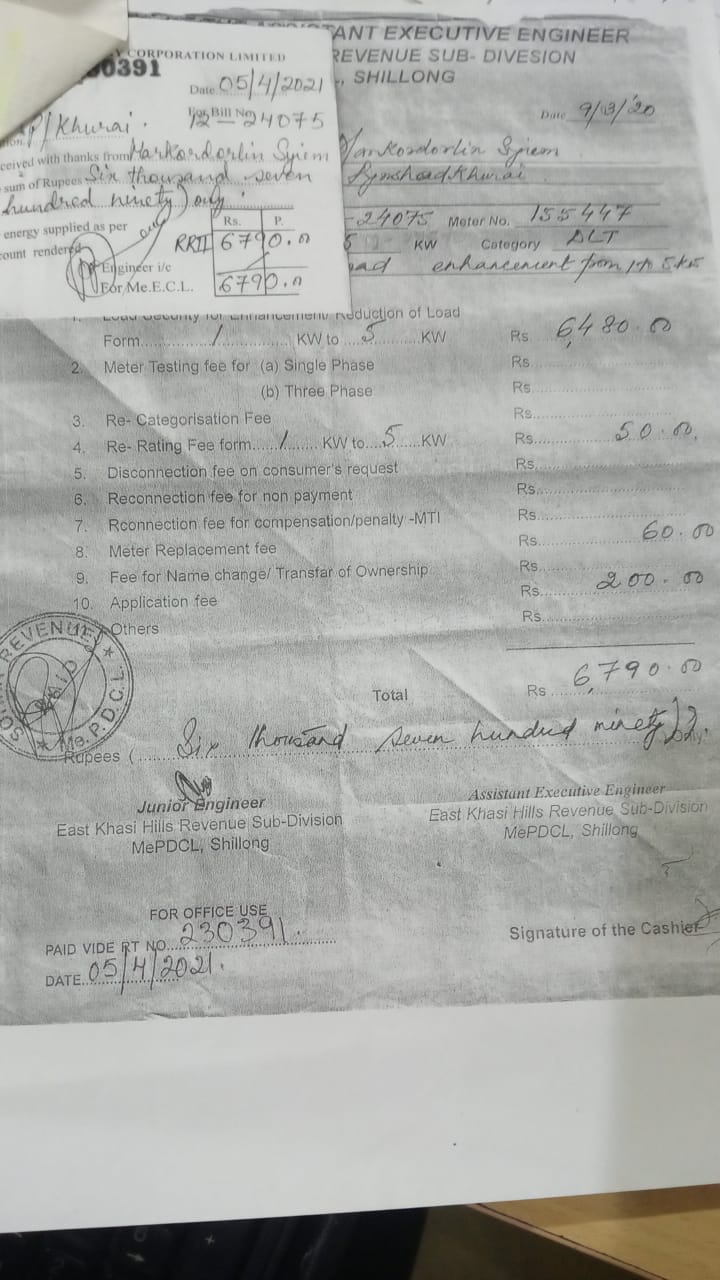 CORPORATION LIMITED
00391
Date 05/4/2021
For Bill No
12-24075
P/Khurai.
ceived with thanks from Markordorlin Syiem
sum of Rupees Six thousand seven
hundred ninety) only.
energy supplied as per
count rendered
Rs. P.
RRII 6790.00
6790.00
Engineer i/c
For Me.E.C.L.
TANT EXECUTIVE ENGINEER
REVENUE SUB- DIVESION
, SHILLONG
Date 9/3/20
Markordorlin Syiem
-24075 Meter No. 155447
5 KW Category DLT
oad enhancement from 1 to 5 KW
1. Load Security for Enhancement/ Reduction of Load
Form.....1..... KW to....5.....KW Rs. 6480.00
2. Meter Testing fee for (a) Single Phase Rs.
(b) Three Phase Rs.
3. Re- Categorisation Fee Rs.
4. Re- Rating Fee form.....1..... KW to....5....KW Rs. 50.00
5. Disconnection fee on consumer's request Rs.
6. Reconnection fee for non payment Rs.
7. Rconnection fee for compensation/penalty -MTI Rs.
8. Meter Replacement fee Rs. 60.00
9. Fee for Name change/ Transfar of Ownership Rs.
10. Application fee Rs. 200.00
Others Rs.
REVENUE
Me.P.D.C.L.
Total Rs 6790.00
Rupees (Six thousand seven hundred ninety)
Junior Engineer
East Khasi Hills Revenue Sub-Division
MePDCL, Shillong
Assistant Executive Engineer
East Khasi Hills Revenue Sub-Division
MePDCL, Shillong
FOR OFFICE USE
PAID VIDE RT NO. 230391
DATE. 05/4/2021.
Signature of the Cashier